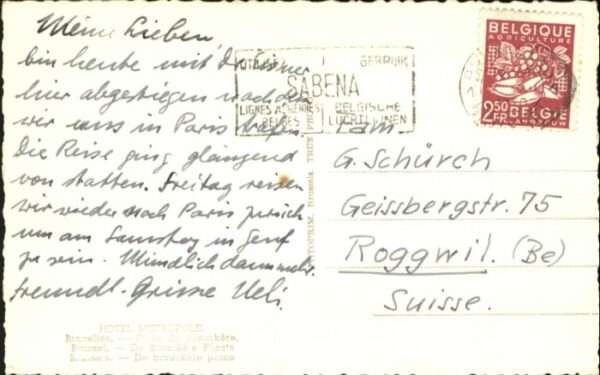 Meine Lieben
bin heute mit
hier abgestiegen nachdem
wir uns in Paris trafen.
Die Reise ging glänzend
von statten. Freitag reisen
wir wieder nach Paris zurück
um am Samstag in Genf
zu sein. Mündlich dann mehr.
freundl. Grüsse Ueli.
HOTEL METROPOLE
Bruxelles.
Brussel.
GEBRUIK
SABENA
LIGNES AERIENNES BELGES
BELGISCHE LUCHTLIJNEN
BELGIQUE
AGRICULTURE
2.50 FR
BELGIE
Fam.
G. Schürch
Geissbergstr. 75
Roggwil. (Be)
Suisse.